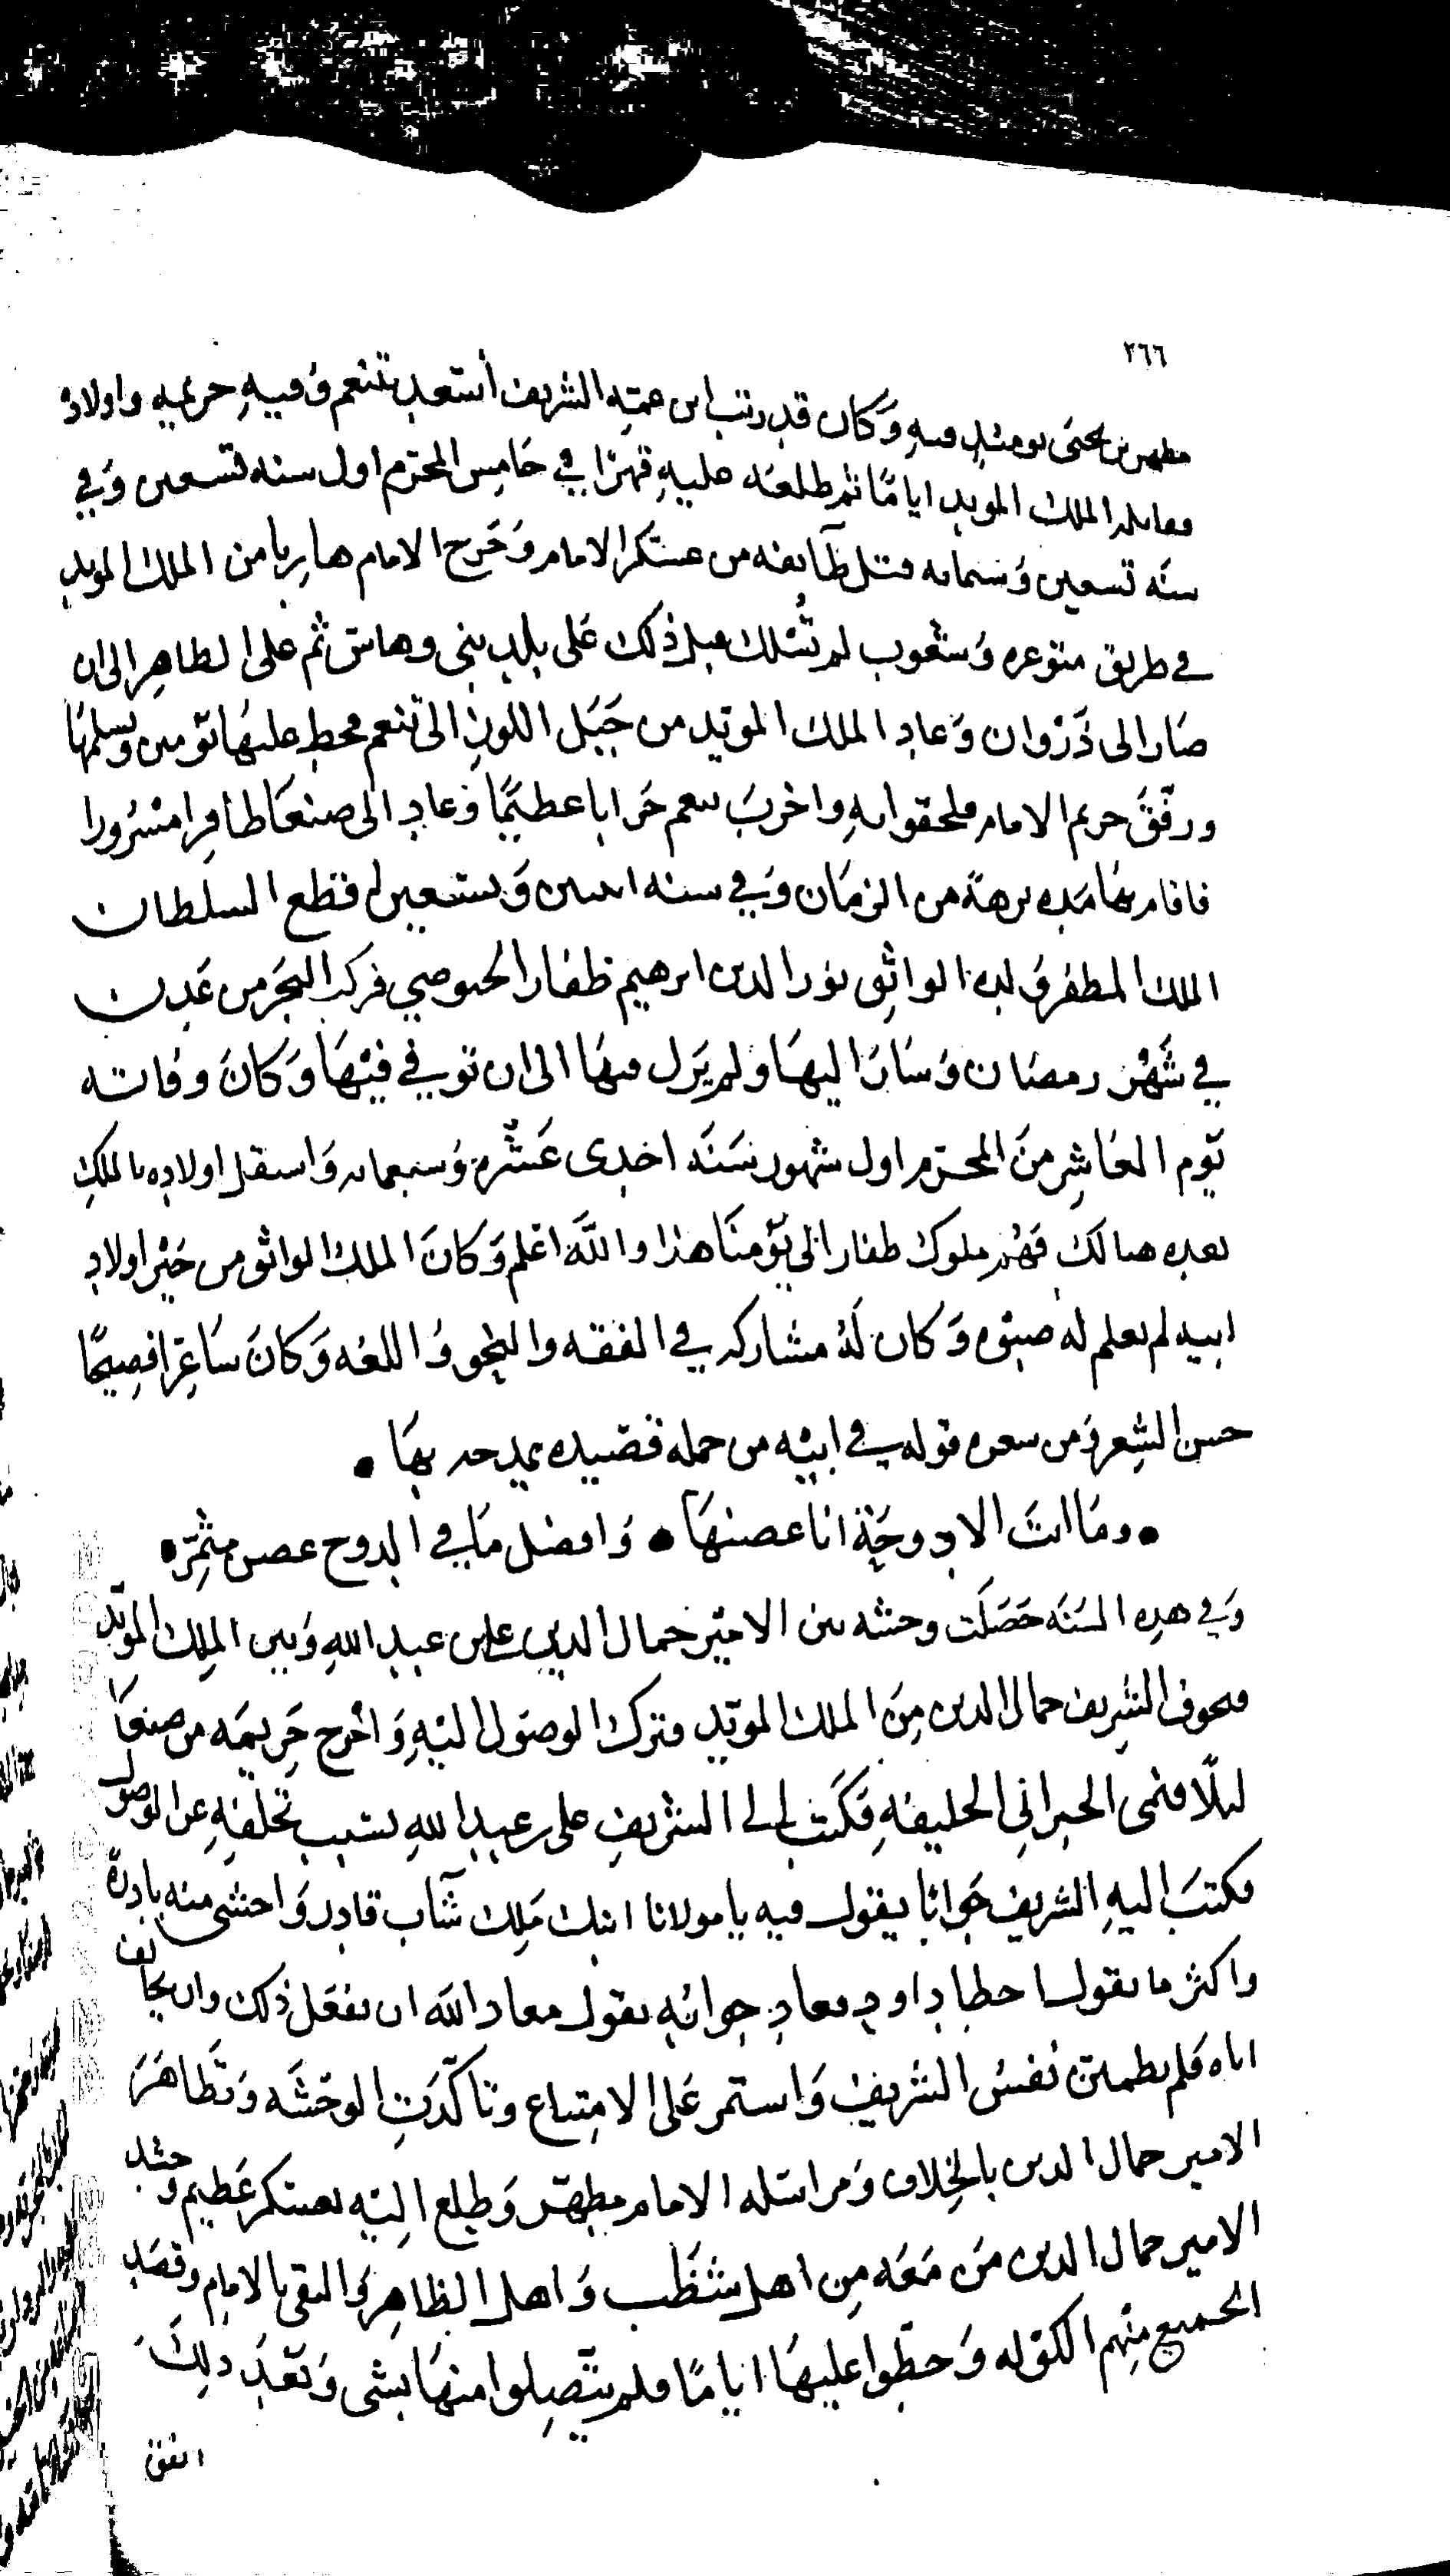 ٢٦٦
مطهر بن يحيى يومئذ فيه وكان قد رتب ابن عمته الشريف أسعد بتنعم وفيه حريمه واولاده
فقابله الملك المويد اياما ثم طلعه عليه قهرا في خامس المحرم اول سنه تسعين وفي
سنه تسعين وستمايه قتل طايفه من عسكر الامام وخرج الامام هاربا من الملك المويد
في طريق متوعره وشعوب لم تسلك قبل ذلك على بلد بني وهاس ثم على الظاهر الى ان
صار الى ذروان وعاد الملك المويد من جبل اللوز الى تنعم فحط عليها يومين وتسلمها
ورفق حريم الامام فلحقوا به واخرب تنعم خرابا عظيما وعاد الى صنعا ظافرا مسرورا
فاقام بها مده برهة من الزمان وفي سنه اثنين وتسعين قطع السلطان
الملك المظفر ولده الواثق نور الدين ابرهيم ظفار الحبوضي فركب البحر من عدن
في شهر رمضان وسار اليها ولم يزل فيها الى ان توفي فيها وكان وفاته
يوم العاشر من المحرم اول شهور سنه احدى عشرة وسبعمايه واستقل اولاده بالملك
بعده هنالك فهم ملوك ظفار الى يومنا هذا والله اعلم وكان الملك الواثق من خير اولاد
ابيه لم يعلم له صبوه وكان له مشاركه في الفقه والنحو واللغه وكان شاعرا فصيحا
حسن الشعر ومن شعره قوله في ابيه من جمله قصيده يمدحه بها •
• وما انت الا دوحة انا غصنها • وافضل ما في الدوح غصن مثمر •
وفي هذه السنه حصلت وحشه بين الامير جمال الدين علي بن عبد الله وبين الملك المويد
فتخوف الشريف جمال الدين من الملك المويد وترك الوصول اليه واخرج حريمه من صنعا
ليلا فنمى الخبر الى الخليفه فكتب الى الشريف علي بن عبد الله بسبب تخلفه عن الوصول
فكتب اليه الشريف جوابا يقول فيه يا مولانا ابنك ملك شاب قادر واخشى منه بادرة
واكثر ما يقول اخطا داود فعاد جوابه يقول معاذ الله ان يفعل ذلك وان يخالف
اباه فلم يطمئن نفس الشريف واستمر على الامتناع وتاكدت الوحشه وتظاهر
الامير جمال الدين بالخلاف ومراسله الامام مطهر وطلع اليه بعسكر عظيم وحشد
الامير جمال الدين من معه من اهل شظب واهل الظاهر والتقى بالامام وقصد
الجميع منهم الكوله وحطوا عليها اياما فلم يتصلوا منها بشي وبعد ذلك
اتفق